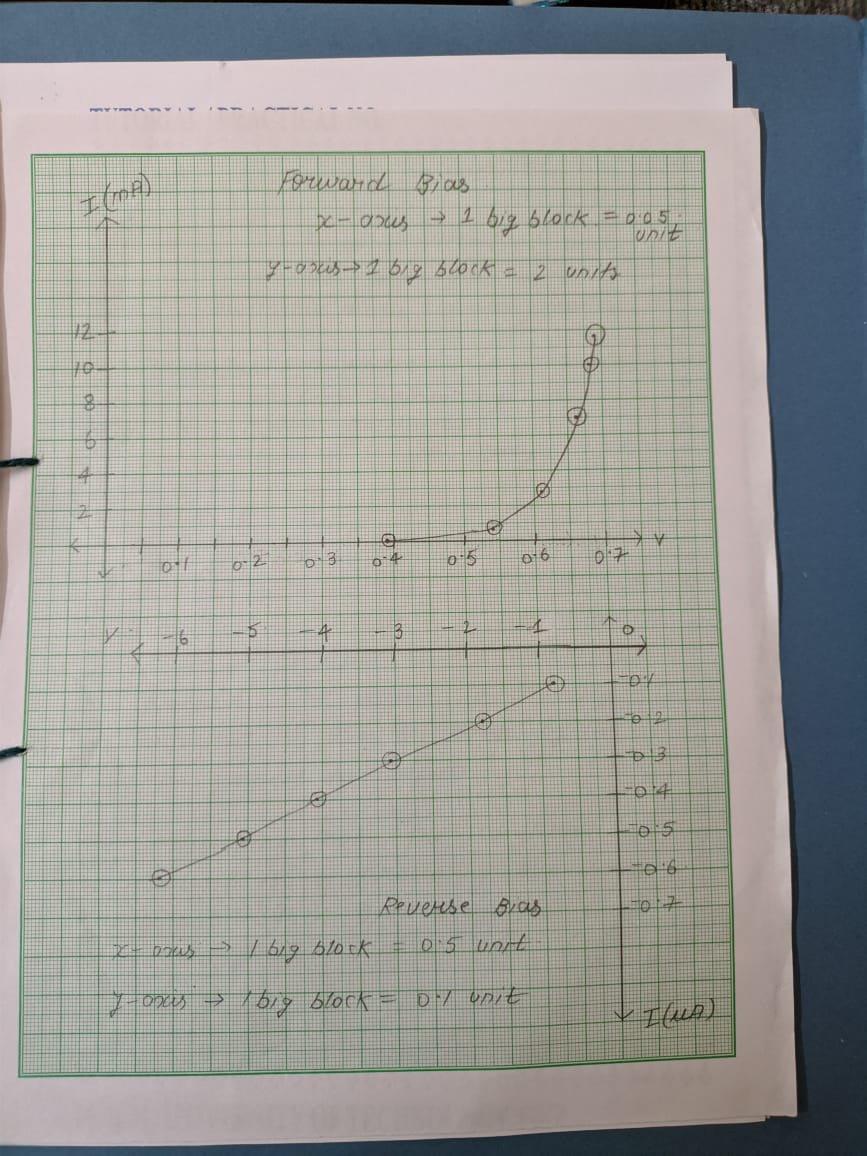 I(mA)
Forward Bias
x-axis → 1 big block = 0.05
unit
y-axis → 1 big block = 2 units
12
10
8
6
4
2
0.1 0.2 0.3 0.4 0.5 0.6 0.7 V
V -6 -5 -4 -3 -2 -1 0
-0.1
-0.2
-0.3
-0.4
-0.5
-0.6
-0.7
Reverse Bias
x-axis → 1 big block = 0.5 unit
y-axis → 1 big block = 0.1 unit
I(μA)